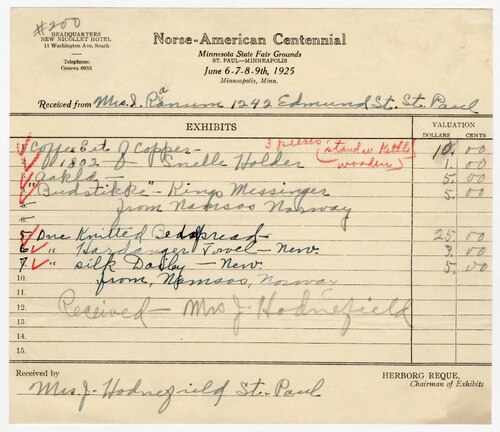 #200
HEADQUARTERS
NEW NICOLLET HOTEL
11 Washington Ave. South
Telephone:
Geneva 6835
Norse-American Centennial
Minnesota State Fair Grounds
ST. PAUL—MINNEAPOLIS
June 6-7-8-9th, 1925
Minneapolis, Minn.
Received from Mrs. J. Ranum 1242 Edmund St. St. Paul
EXHIBITS VALUATION
DOLLARS CENTS
1. Coffee Set of Copper- 3 pieces (Standar Kettle 10.00
2. 1802 - Snelle Holder wooden) 1.00
3. 5.00
4. "Budstikke" - Kings Messinger 5.00
5. from Namsos Norway
5 One Knitted Bedspread- 25 00
6 " Hardanger Towel - New. 3 00
7. " silk Dailey - New. 5. 00
10. from, Namsos, Norway
11.
12. Received - Mrs J. Hodnefield
13.
14.
15.
Received by
Mrs. J. Hodnefield St. Paul
HERBORG REQUE,
Chairman of Exhibits